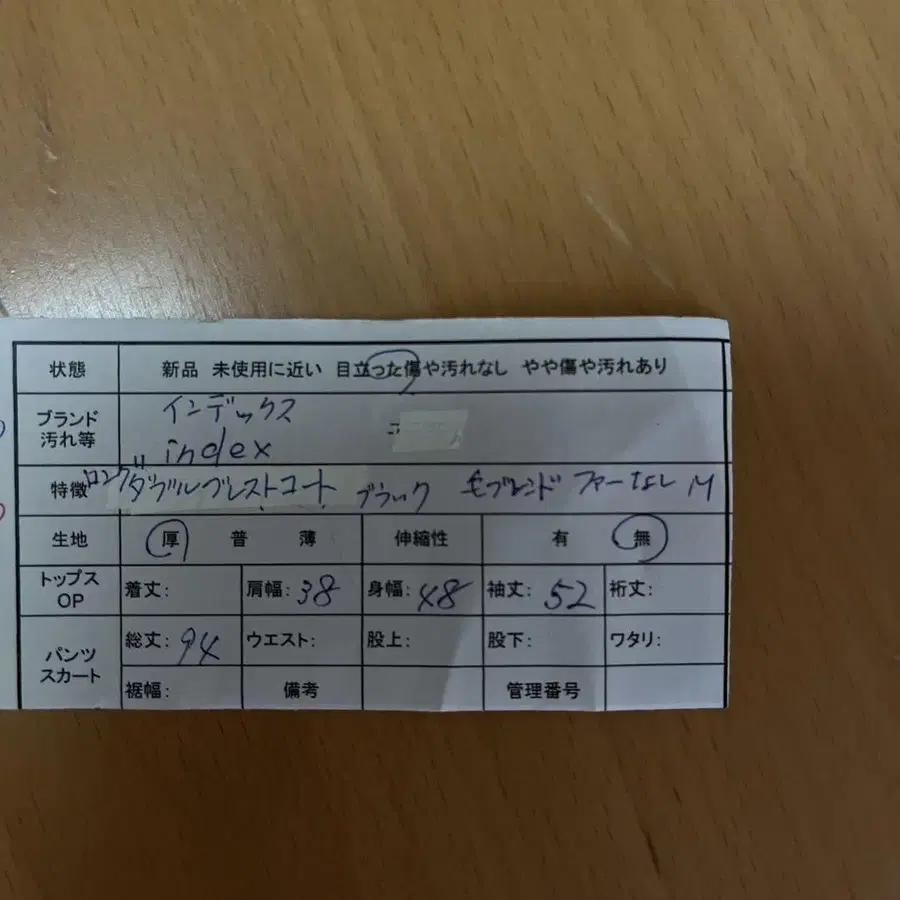 状態 新品 未使用に近い 目立った傷や汚れなし やや傷や汚れあり
ブランド 汚れ等 インデックス
index
特徴 ロングダブルブレストコート ブラック 毛ブレンド ファーなし M
生地 厚 普 薄 伸縮性 有 無
トップス OP 着丈: 肩幅:38 身幅:48 袖丈:52 裄丈:
パンツ スカート 総丈:94 ウエスト: 股上: 股下: ワタリ:
裾幅: 備考 管理番号